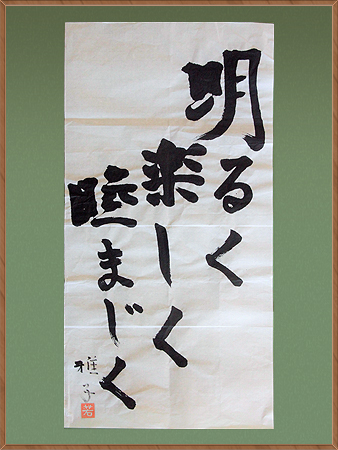 明るく
楽しく
睦まじく
若